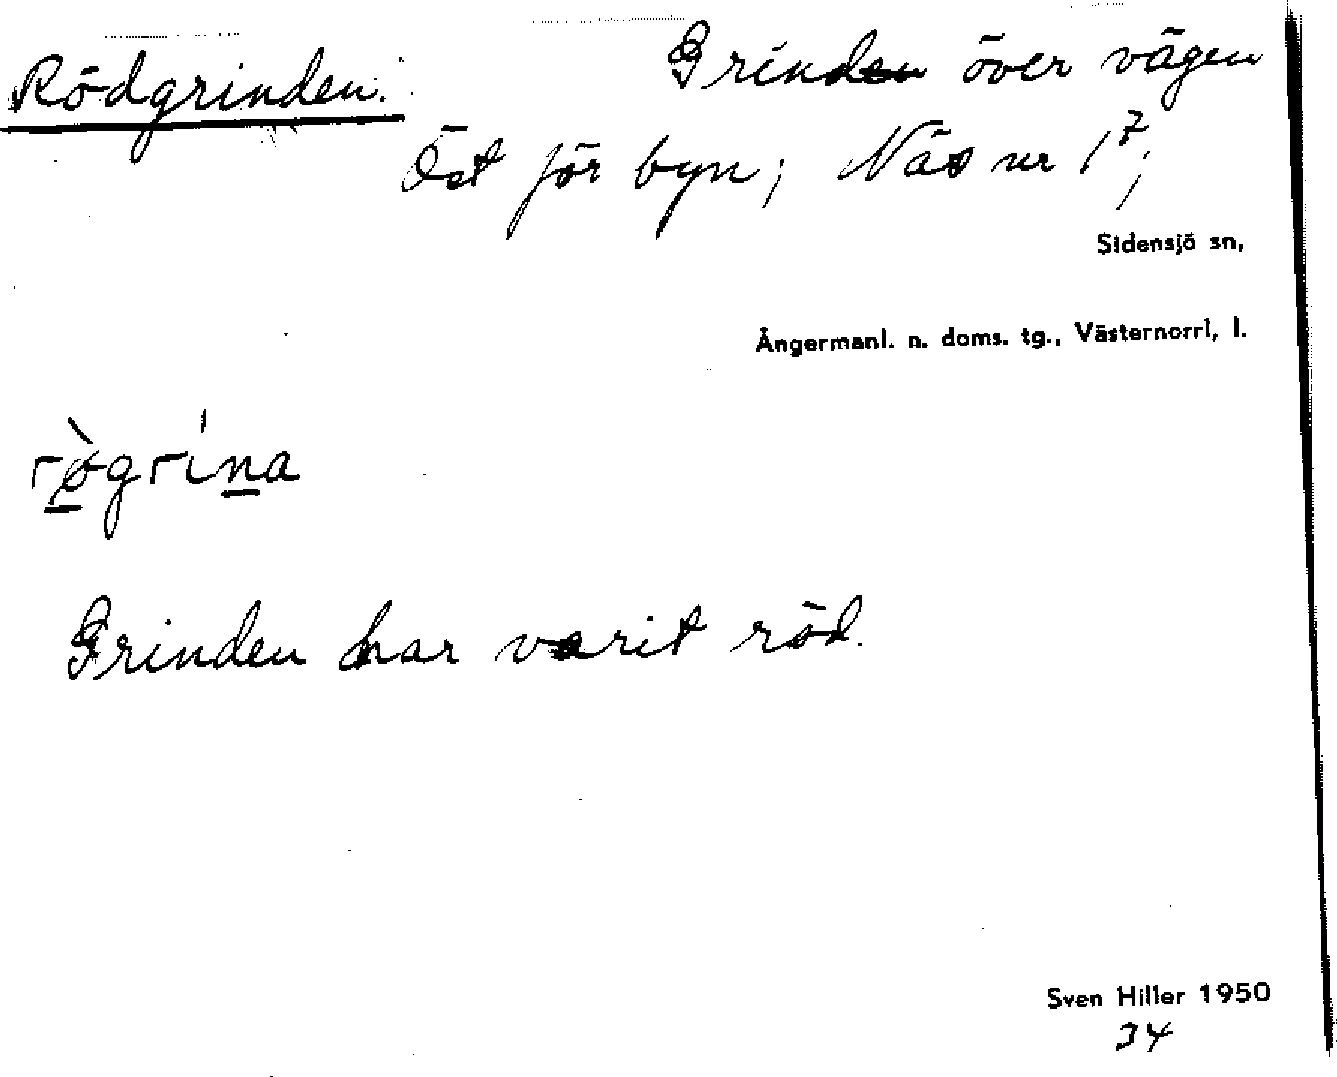 Rödgrinden. Grinden över vägen
Öst för byn; Näs nr 1⁷;
Sidensjö sn,
Ångermanl. n. doms. tg., Västernorrl, l.
rø̀grína
Grinden har varit röd.
Sven Hiller 1950
34